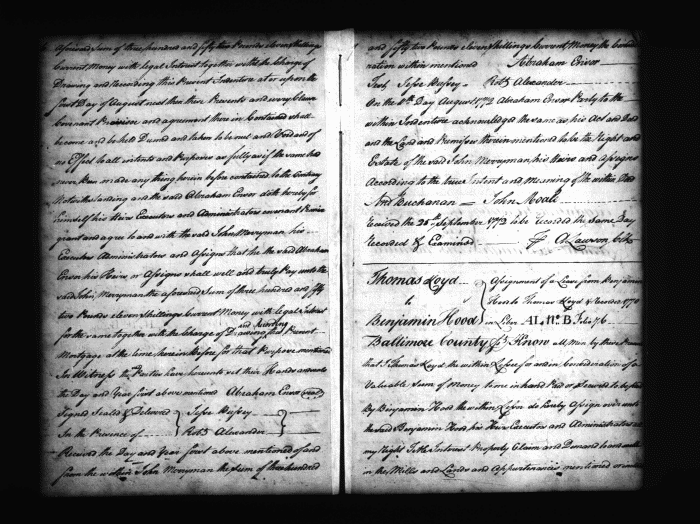 aforesaid Sum of three hundred and fifty two Pounds eleven Shillings
Current Money with legal Interest together with the Charge of
Drawing and recording this Present Indenture at or upon the
first Day of August next then these Presents and every Clause
Covenant Provision and agreement therein Contained shall
become and be held Deemed and taken to be null and Void and of
no Effect to all intents and Purposes as fully as if the same had
never been made any thing herein before contained to the Contrary
Notwithstanding and the said Abraham Ensor doth hereby for
himself his Heirs Executors and Administrators covenant Promise
grant and agree to and with the said John Merryman his
Executors Administrators and Assigns that he the said Abraham
Ensor his Heirs or Assigns shall well and truly Pay unto the
said John Merryman the aforesaid Sum of three hundred and fifty
two Pounds eleven Shillings Current Money with legal Interest
for the same together with the Charge of Drawing and recording this Present
Mortgage at the time herein Before for that Purpose mentioned
In Witness the Parties have hereunto set their Hands and seals
the Day and Year first above mentioned Abraham Ensor (seal)
Signed Sealed & Delivered } Jesse Bussey
In the Presence of } Robt Alexander
Received the Day and Year first above mentioned of and
from the within John Merryman the Sum of three hundred
and fifty two Pounds Eleven Shillings Current Money the Consid
eration within mentioned Abraham Ensor
Test Jesse Bussey Robt Alexander
On the 8th Day August 1772 Abraham Ensor Party to the
within Indenture acknowledged the same as his Act and Deed
and the Land and Premises therein mentioned to be the Right and
Estate of the said John Merryman his Heirs and Assigns
According to the true Intent and Meaning of the within Deed
And Buchanan John Moale
Received the 25th September 1772 to be recorded the same Day
Recorded & Examined A Lawson Clk
Thomas Loyd } Assignment of a Lease from Benjamin
to } Hood to Thomas Loyd & Recorded 1770
Benjamin Hood } in Liber AL No. B folio 76
Baltimore County Know all Men by these Presents
that I Thomas Loyd the within Lessee for and in Consideration of a
Valuable Sum of Money to me in hand Paid or Secured to be paid
By Benjamin Hood the within Lessor do hereby Assign over unto
the said Benjamin Hood his Heirs Executors and Administrators all
my Right Title Interest Property Claim and Demand to and
in the Mills and Lands and Appurtenances mentioned